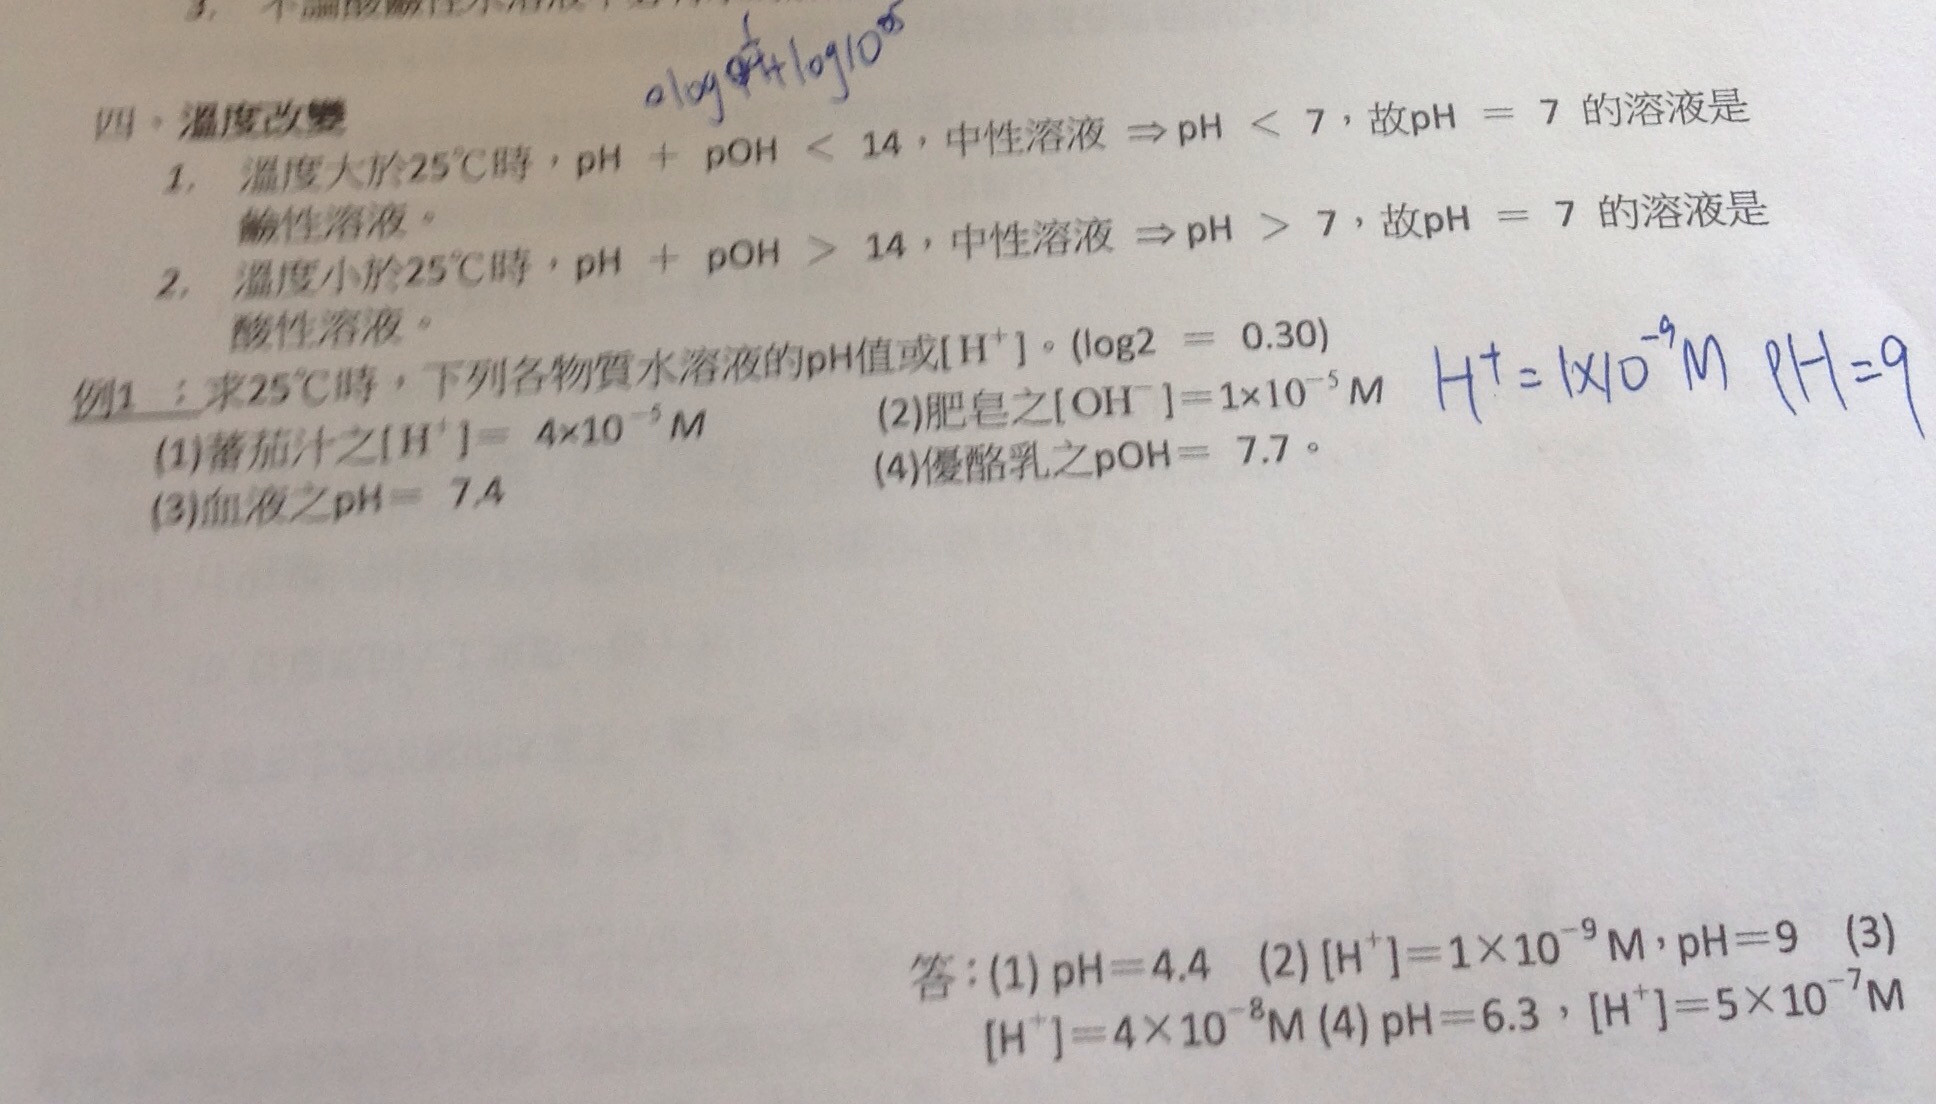 3. 不論酸鹼性水溶液中
log10
四、溫度改變
1. 溫度大於25℃時，pH + pOH < 14，中性溶液 ⇒ pH < 7，故pH = 7 的溶液是
鹼性溶液。
2. 溫度小於25℃時，pH + pOH > 14，中性溶液 ⇒ pH > 7，故pH = 7 的溶液是
酸性溶液。
例1：求25℃時，下列各物質水溶液的pH值或[H⁺]。(log2 = 0.30)
(1)蕃茄汁之[H⁺]= 4×10⁻⁵M (2)肥皂之[OH⁻]=1×10⁻⁵M H⁺=1×10⁻⁹M PH=9
(3)血液之pH= 7.4 (4)優酪乳之pOH= 7.7。
答：(1) pH=4.4 (2) [H⁺]=1×10⁻⁹M，pH=9 (3)
[H⁺]=4×10⁻⁸M (4) pH=6.3，[H⁺]=5×10⁻⁷M